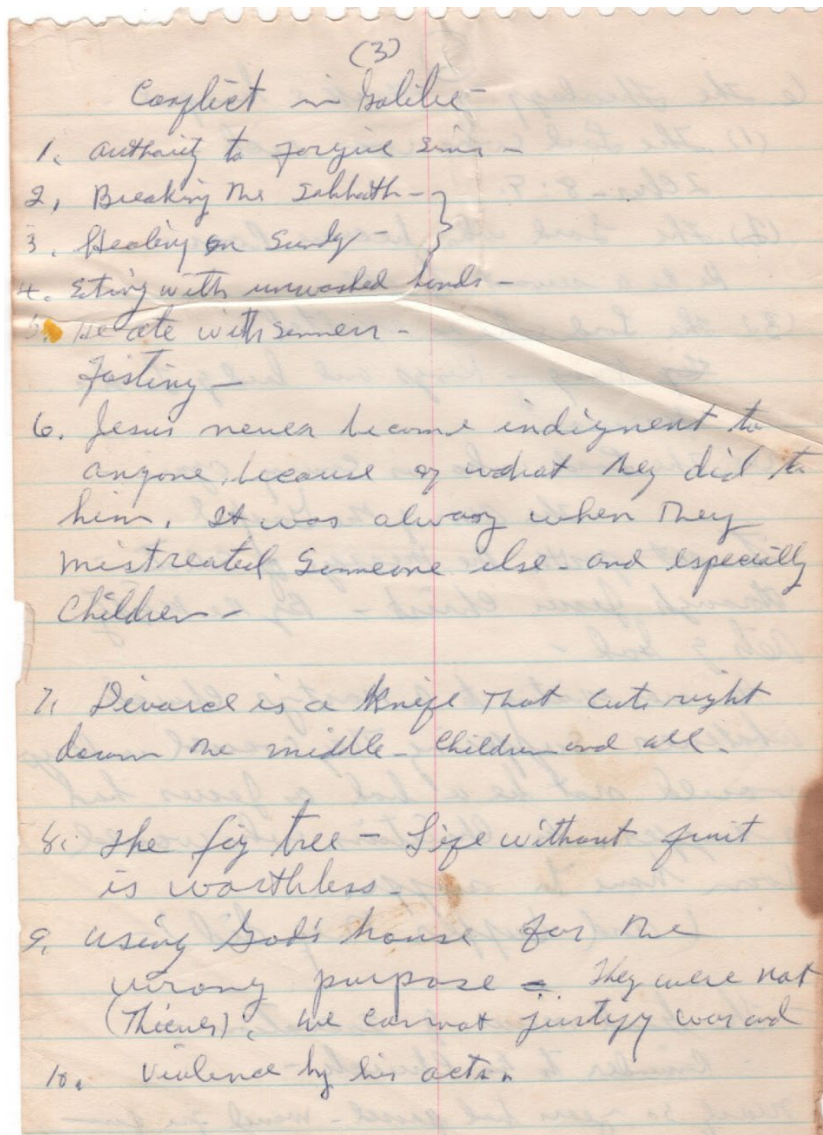 (3)
Conflict in Galilee
1. Authority to forgive sins -
2. Breaking the Sabbath -
3. Healing on Sunday -
4. Eting with unwashed hands -
5. He ate with sinners -
Fasting -
6. Jesus never become indignent to
anyone, because of what they did to
him. It was always when they
mistreated someone else - and especially
Children -
7. Divorce is a knife that cuts right
down the middle - Children and all.
8. The fig tree - Life without fruit
is worthless.
9. Using God's house for the
wrong purpose - They were not
(Thieves). We cannot justify war and
10. violence by his acts.